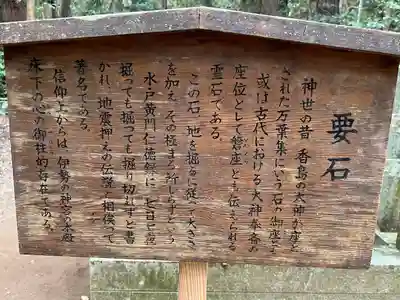 要石
神世の昔 香島の大神が座と
された万葉集にいう石の御座とも
或は古代における大神奉斎の
座位として磐座とも伝えられる
霊石である。
この石、地を掘るに従って大きさ
を加え、その極まる所しらずという
水戸黄門仁徳録に、七日七夜
掘っても掘っても掘り切れずと書
かれ、地震押えの伝説と相俟って
著名である。
信仰上からは、伊勢の神宮の本殿
床下の心の御柱的存在である。